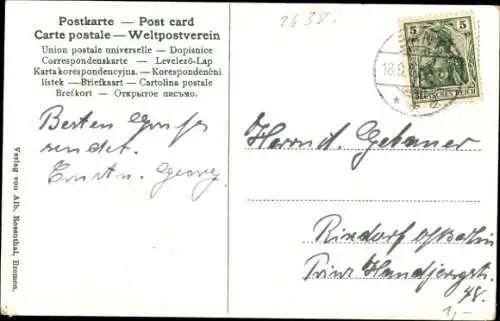 Postkarte — Post card
Carte postale — Weltpostverein
Union postale universelle — Dopisnice
Correspondenskarte — Levelező-Lap
Karta korespondencyjna. — Korespondenční
lístek — Briefkaart — Cartolina postale
Brefkort — Открытое письмо.
2638.
5 5
DEUTSCHES REICH
18.9.
Besten Gruß
sendet.
Ernst u. Georg
Herrn d. Gebauer
Rixdorf b/Berlin
Prinz Handjerystr.
48.
1,-
Verlag von Alb. Rosenthal, Bremen.